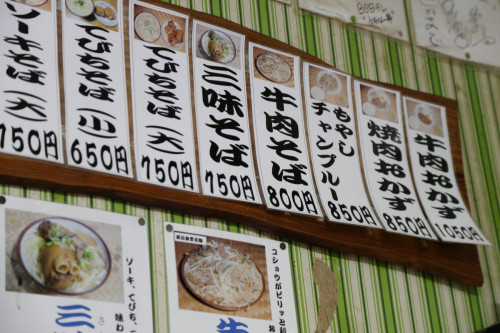 ソーキそば(大)
750円
てびちそば(小)
650円
てびちそば(大)
750円
三味そば
750円
牛肉そば
800円
もやし
チャンプルー
850円
焼肉おかず
850円
牛肉おかず
1050円
ソーキ、てびち、
味わ
三
コショウがピリッと
牛